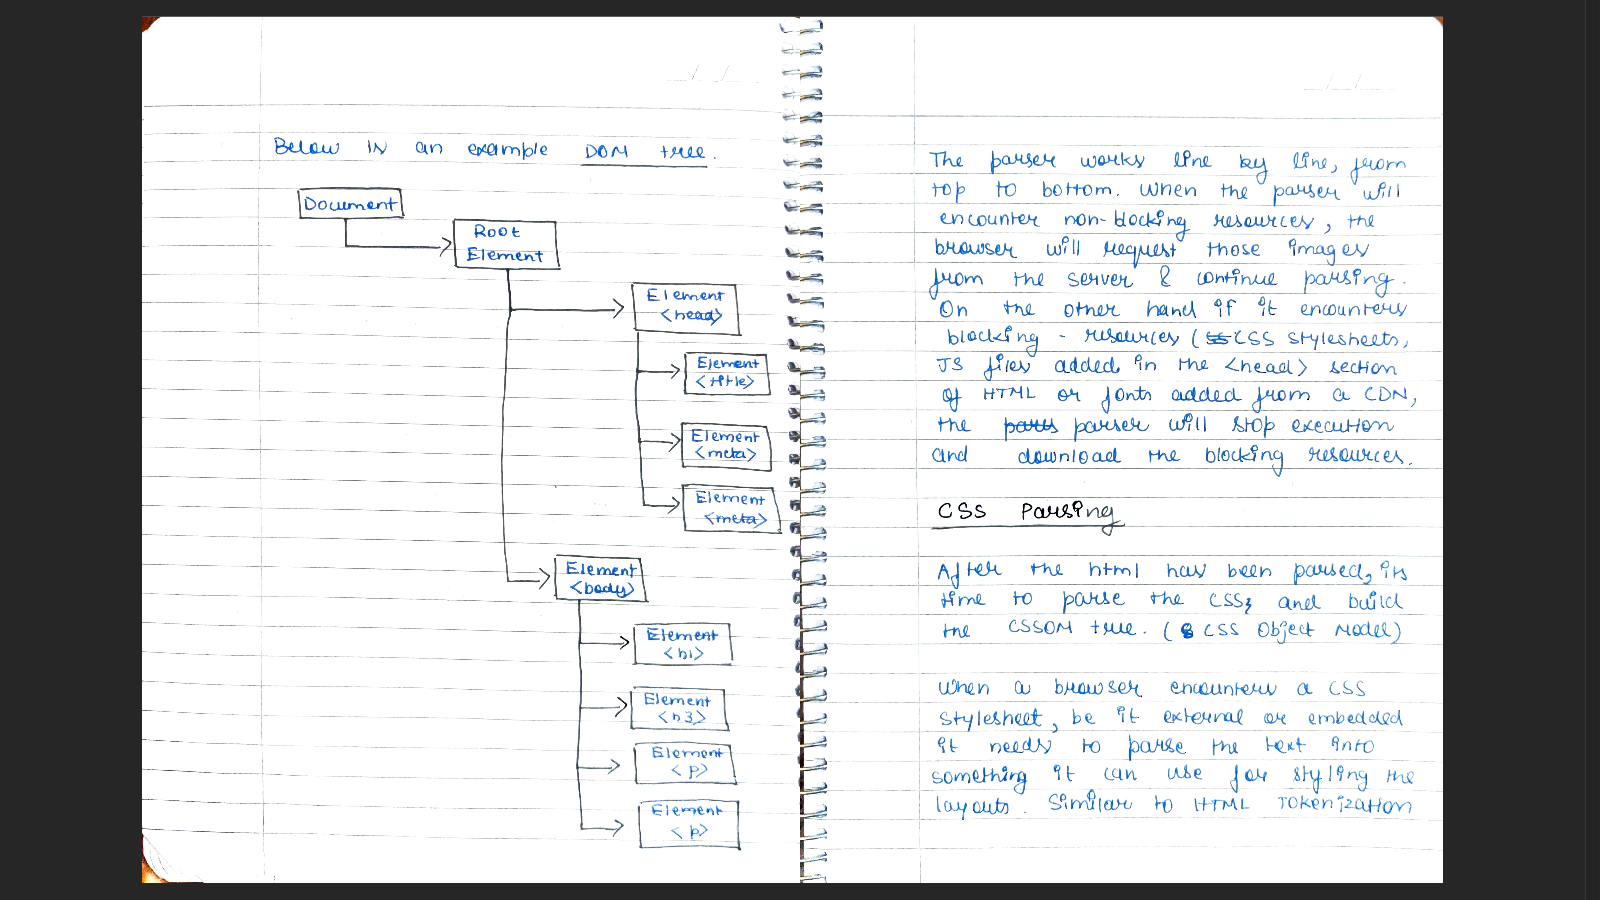 Below is an example DOM tree.
Document
Root
Element
Element
<head>
Element
<title>
Element
<meta>
Element
<meta>
Element
<body>
Element
<h1>
Element
<h3>
Element
<p>
Element
<p>
The parser works line by line, from
top to bottom. When the parser will
encounter non-blocking resources, the
browser will request those images
from the server & continue parsing.
On the other hand if it encounters
blocking - resources (CSS stylesheets,
JS files added in the <head> section
of HTML or fonts added from a CDN,
the parser will stop execution
and download the blocking resources.
CSS Parsing
After the html has been parsed, its
time to parse the CSS and build
the CSSOM tree. (CSS Object Model)
When a browser encounters a CSS
stylesheet, be it external or embedded
it needs to parse the text into
something it can use for styling the
layouts. Similar to HTML Tokenization